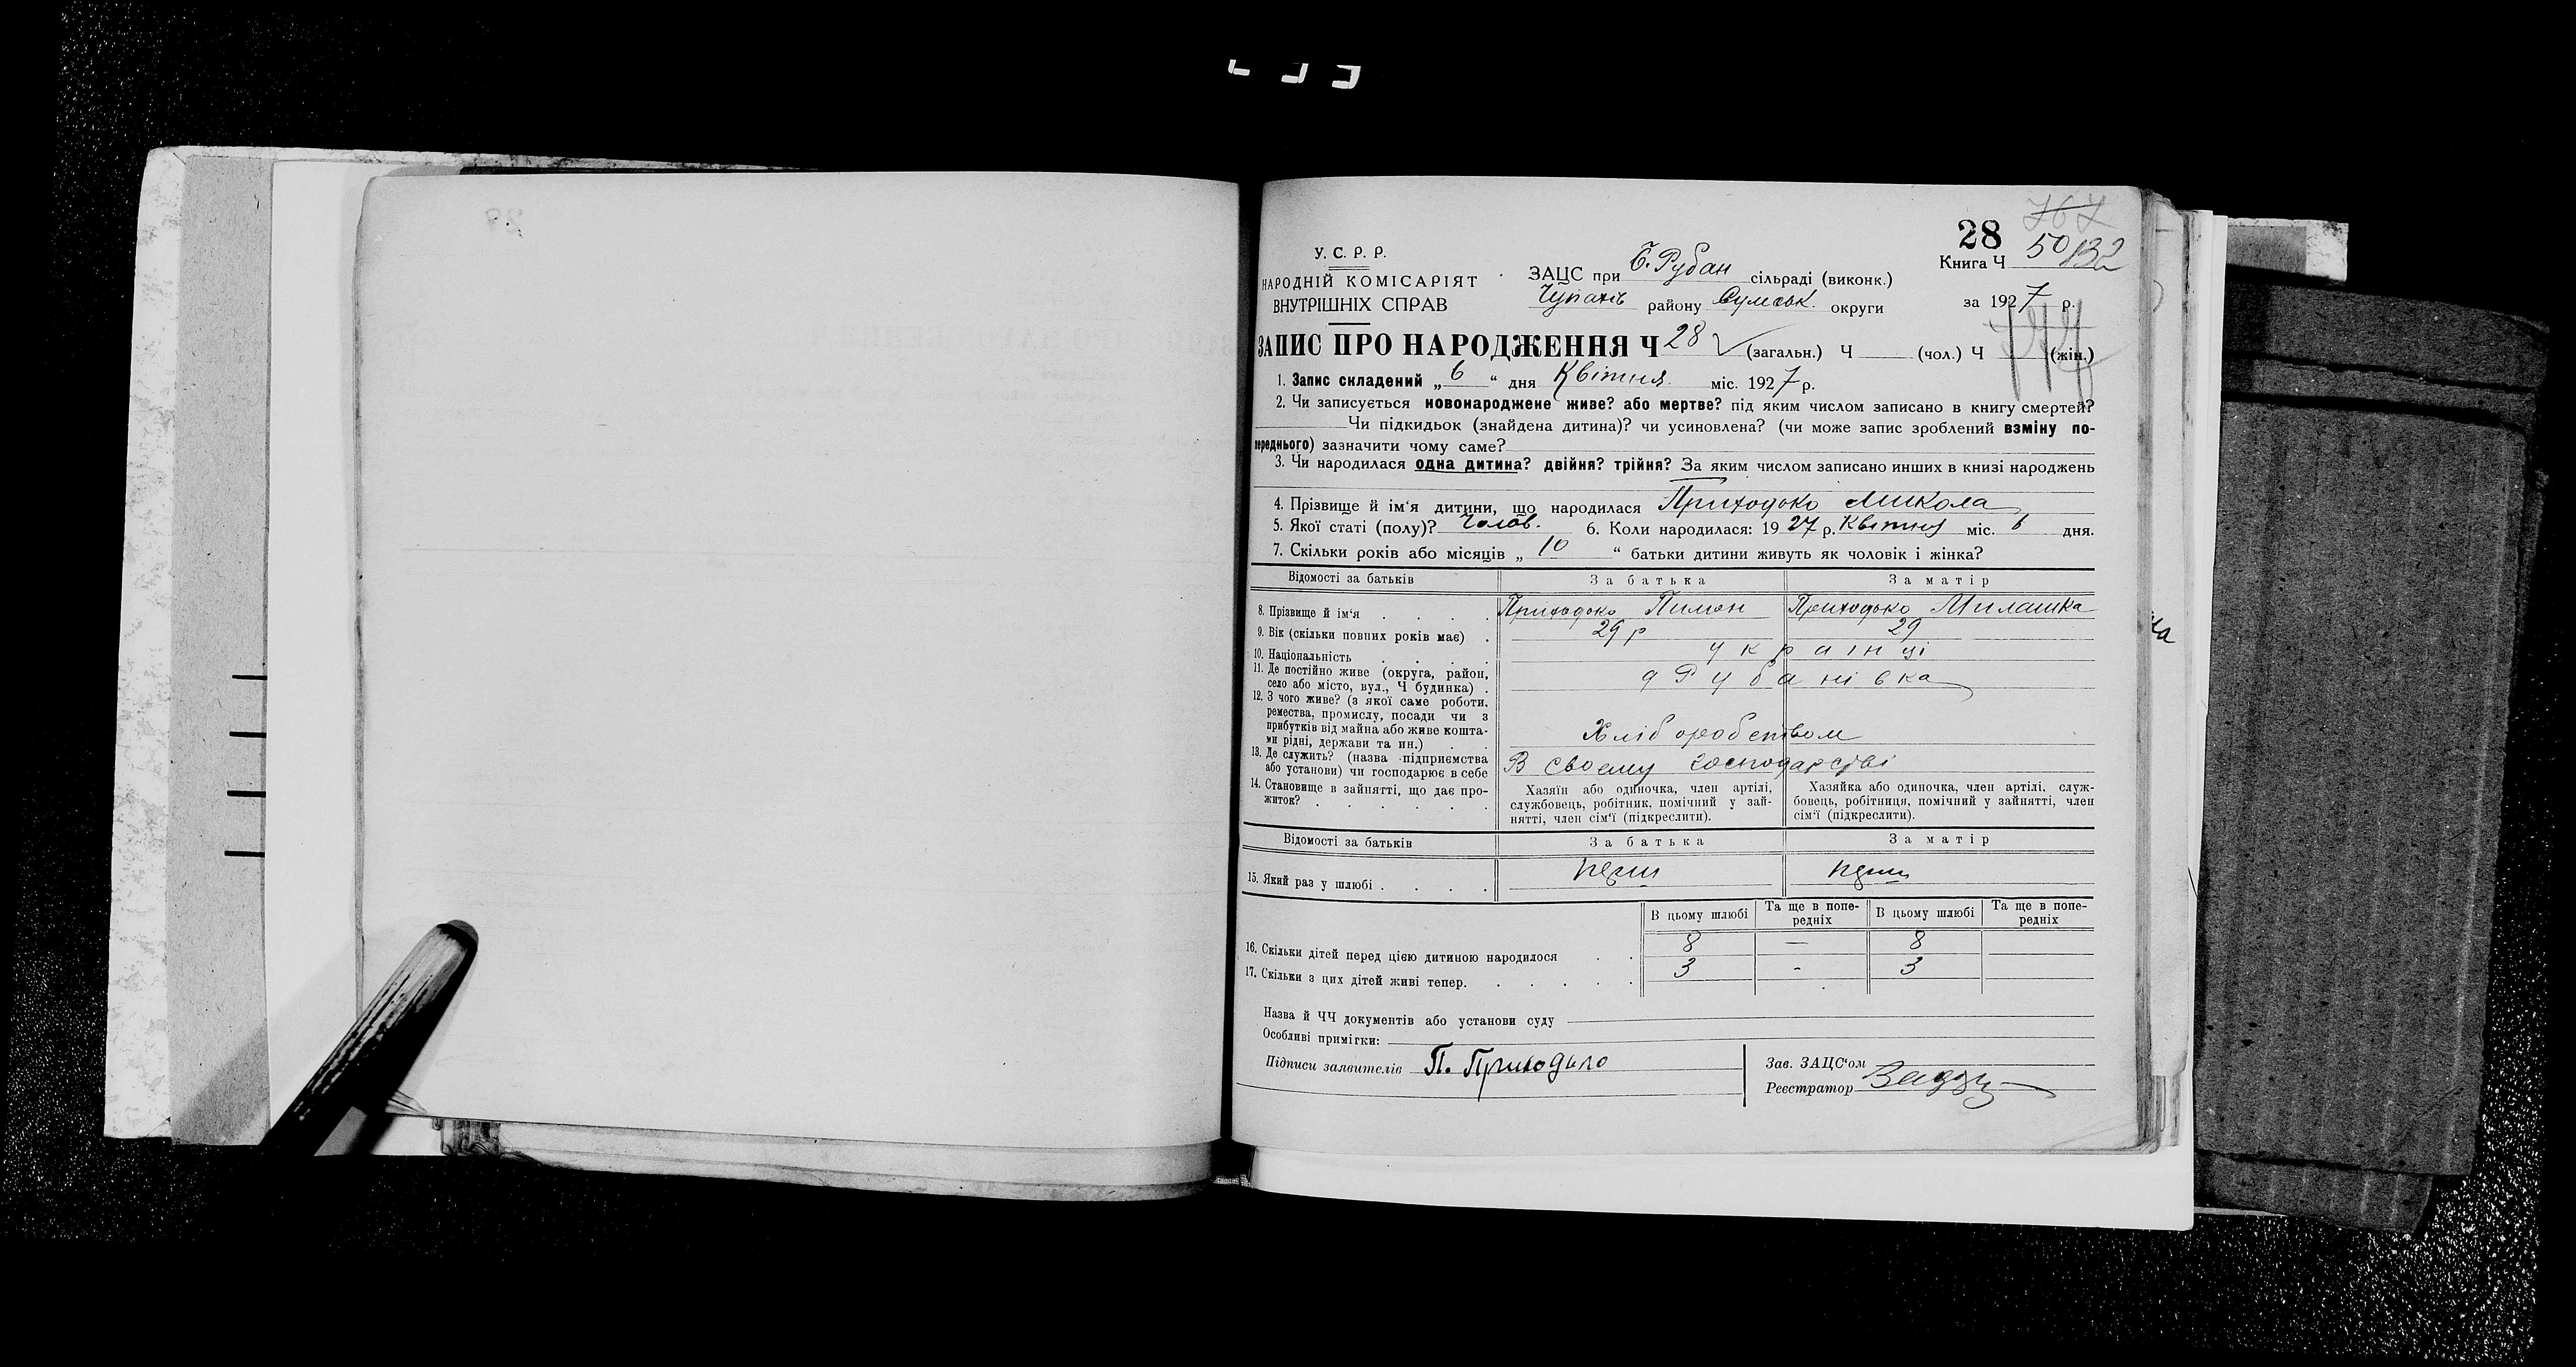 28
767
50 132
У. С. Р. Р.
НАРОДНІЙ КОМІСАРІЯТ
ВНУТРІШНІХ СПРАВ
ЗАЦС при Б. Рубан сільраді (виконк.)
Чупахів району Сумськ. округи
Книга Ч
за 1927 р.
ЗАПИС ПРО НАРОДЖЕННЯ Ч 28 (загальн.) Ч (чол.) Ч (жін.)
1. Запис складений „ 6 “ дня Квітня міс. 1927 р.
2. Чи записується новонароджене живе? або мертве? під яким числом записано в книгу смертей?
Чи підкидьок (знайдена дитина)? чи усиновлена? (чи може запис зроблений взміну по-
переднього) зазначити чому саме?
3. Чи народилася одна дитина? двійня? трійня? За яким числом записано инших в книзі народжень
4. Прізвище й ім‘я дитини, що народилася Приходько Микола
5. Якої статі (полу)? Чолов. 6. Коли народилася: 19 27 р. Квітня міс. 6 дня.
7. Скільки років або місяців „ 10 “ батьки дитини живуть як чоловік і жінка?
Відомості за батьків За батька За матір
8. Прізвище й ім‘я . . . . Приходько Пимон Приходько Милашка
9. Вік (скільки повних років має) . 29 р 29
10. Національність . . . . українці
11. Де постійно живе (округа, район,
село або місто, вул., Ч будинка) . Рубанівка
12. З чого живе? (з якої саме роботи,
ремества, промислу, посади чи з
прибутків від майна або живе кошта-
ми рідні, держави та ин.) . . Хліборобством
13. Де служить? (назва підприємства
або установи) чи господарює в себе В своему господарстві
14. Становище в зайнятті, що дає про-
житок? . . . . . .
Хазяїн або одиночка, член артілі,
службовець, робітник, помічний у зай-
нятті, член сім‘ї (підкреслити).
Хазяйка або одиночка, член артілі, служ-
бовець, робітниця, помічний у зайнятті, член
сім‘ї (підкреслити).
Відомості за батьків За батька За матір
15. Який раз у шлюбі . . . . перш перш
В цьому шлюбі Та ще в попе-
редніх В цьому шлюбі Та ще в попе-
редніх
16. Скільки дітей перед цією дитиною народилося . . 8 — 8
17. Скільки з цих дітей живі тепер. . . . . . 3 - 3
Назва й ЧЧ документів або установи суду
Особливі примітки:
Підписи заявителів П. Приходько
Зав. ЗАЦС‘ом
Реєстратор